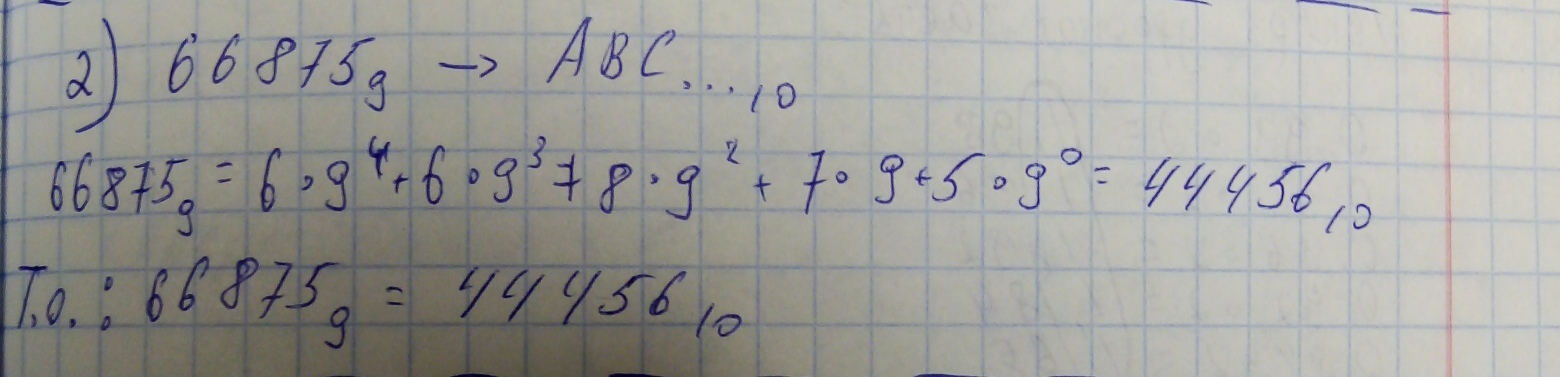 2) 66875₉ → ABC...₁₀
66875₉ = 6·9⁴+6·9³+8·9²+7·9+5·9⁰ = 44456₁₀
Т.о.: 66875₉ = 44456₁₀